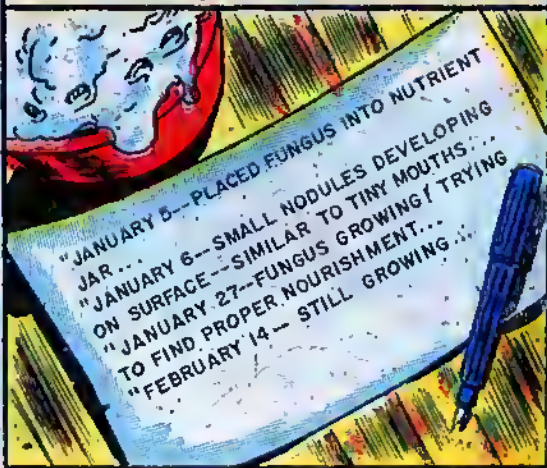 "JANUARY 5--PLACED FUNGUS INTO NUTRIENT
JAR...
"JANUARY 6--SMALL NODULES DEVELOPING
ON SURFACE--SIMILAR TO TINY MOUTHS...
"JANUARY 27--FUNGUS GROWING! TRYING
TO FIND PROPER NOURISHMENT...
"FEBRUARY 14-- STILL GROWING...